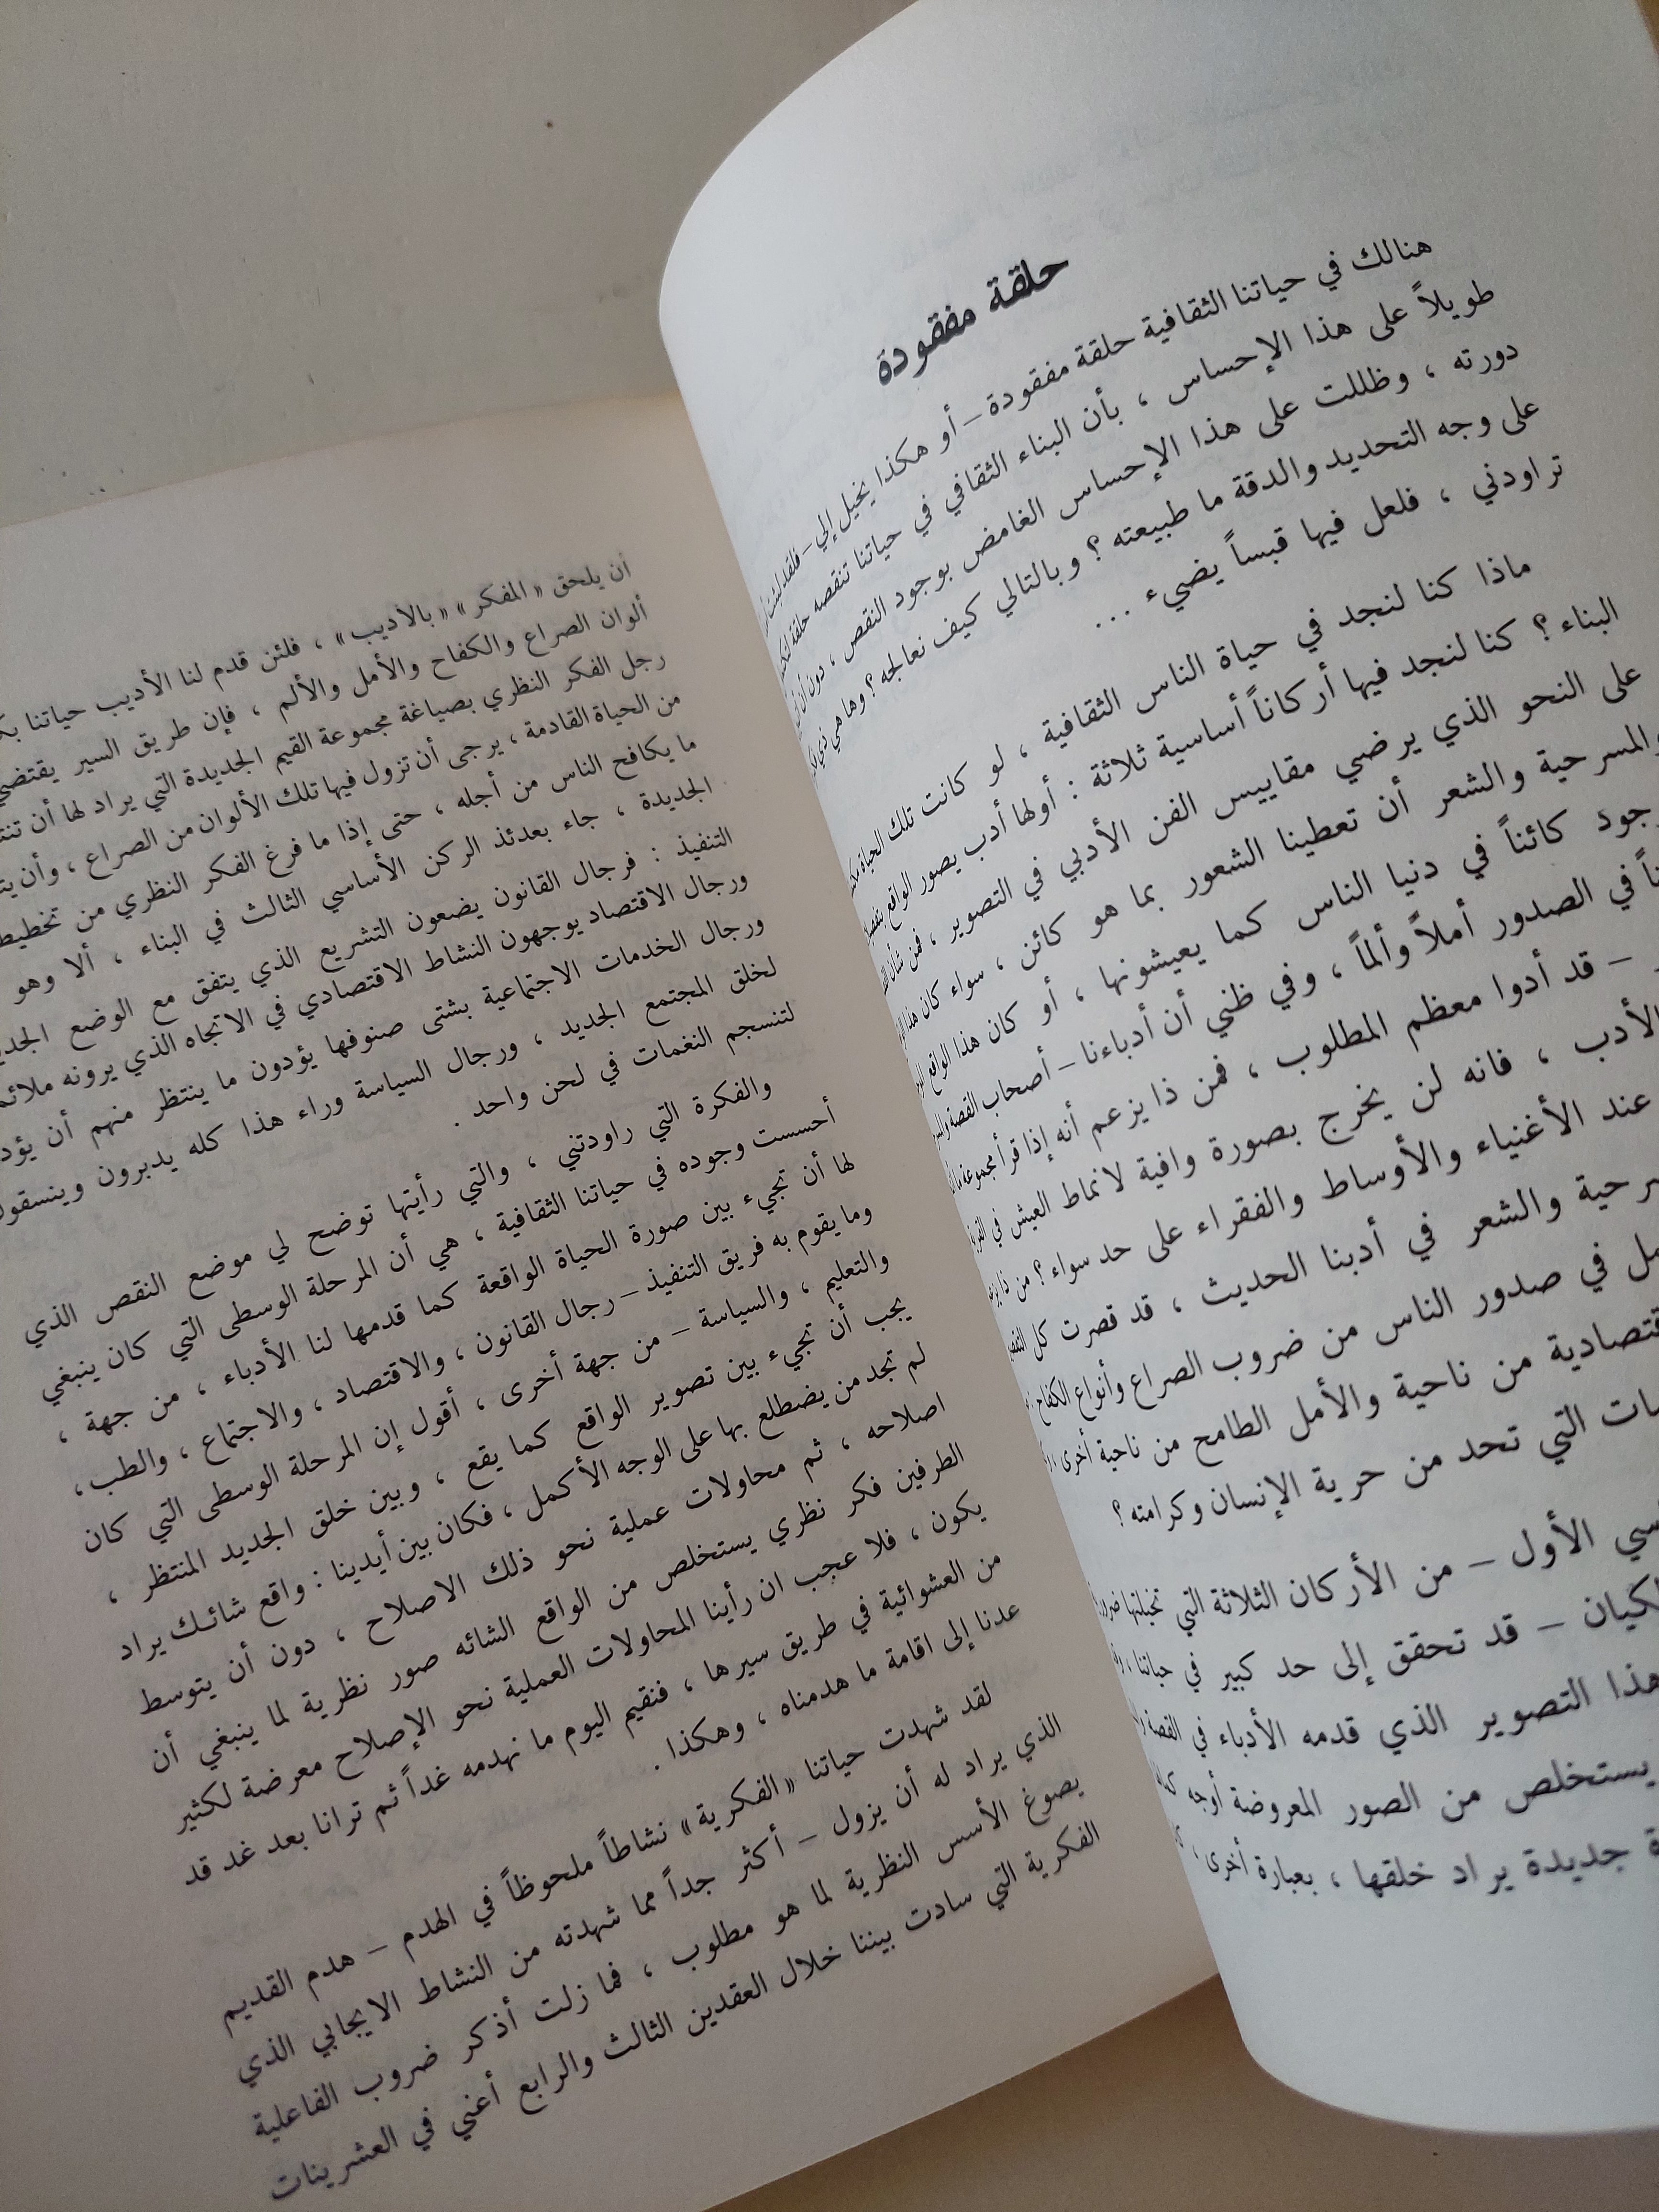 حلقة مفقودة
هنالك في حياتنا الثقافية حلقة مفقودة – أو هكذا يخيل إلي – فلقد لبثت
طويلاً على هذا الإحساس ، بأن البناء الثقافي في حياتنا تنقصه حلقة
دورته ، وظللت على هذا الإحساس الغامض بوجود النقص ، دون أن
على وجه التحديد والدقة ما طبيعته ؟ وبالتالي كيف نعالجه ؟ وها هي ذي
تراودني ، فلعل فيها قبساً يضيء ...
ماذا كنا لنجد في حياة الناس الثقافية ، لو كانت تلك الحياة
البناء ؟ كنا لنجد فيها أركاناً أساسية ثلاثة : أولها أدب يصور الواقع
على النحو الذي يرضي مقاييس الفن الأدبي في التصوير ، فمن شأن
والمسرحية والشعر أن تعطينا الشعور بما هو كائن ، سواء كان هذا
كائناً في دنيا الناس كما يعيشونها ، أو كان هذا الواقع
في الصدور أملاً وألماً ، وفي ظني أن أدباءنا – أصحاب القصة
– قد أدوا معظم المطلوب ، فمن ذا يزعم أنه إذا قرأ مجموعة
الأدب ، فانه لن يخرج بصورة وافية لانماط العيش في
عند الأغنياء والأوساط والفقراء على حد سواء ؟ من ذا
والشعر في أدبنا الحديث ، قد قصرت كل
في صدور الناس من ضروب الصراع وأنواع الكفاح
من ناحية والأمل الطامح من ناحية أخرى ،
التي تحد من حرية الإنسان وكرامته ؟
الأول – من الأركان الثلاثة التي تخيلتها
– قد تحقق إلى حد كبير في حياتنا ،
هذا التصوير الذي قدمه الأدباء في القصة
يستخلص من الصور المعروضة أوجه
جديدة يراد خلقها ، بعبارة أخرى ،
أن يلحق « المفكر » « بالأديب » ، فلئن قدم لنا الأديب حياتنا
ألوان الصراع والكفاح والأمل والألم ، فإن طريق السير يقتضي
رجل الفكر النظري بصياغة مجموعة القيم الجديدة التي يراد لها أن
من الحياة القادمة ، يرجى أن تزول فيها تلك الألوان من الصراع ، وأن
ما يكافح الناس من أجله ، حتى إذا ما فرغ الفكر النظري من
الجديدة ، جاء بعدئذ الركن الأساسي الثالث في البناء ، ألا وهو
التنفيذ : فرجال القانون يضعون التشريع الذي يتفق مع الوضع
ورجال الاقتصاد يوجهون النشاط الاقتصادي في الاتجاه الذي يرونه
ورجال الخدمات الاجتماعية بشتى صنوفها يؤدون ما ينتظر منهم أن
لخلق المجتمع الجديد ، ورجال السياسة وراء هذا كله يدبرون وينسقون
لتنسجم النغمات في لحن واحد .
والفكرة التي راودتني ، والتي رأيتها توضح لي موضع النقص الذي
أحسست وجوده في حياتنا الثقافية ، هي أن المرحلة الوسطى التي كان ينبغي
لها أن تجيء بين صورة الحياة الواقعة كما قدمها لنا الأدباء ، من جهة ،
وما يقوم به فريق التنفيذ – رجال القانون ، والاقتصاد ، والاجتماع ، والطب ،
والتعليم ، والسياسة – من جهة أخرى ، أقول إن المرحلة الوسطى التي كان
يجب أن تجيء بين تصوير الواقع كما يقع ، وبين خلق الجديد المنتظر ،
لم تجد من يضطلع بها على الوجه الأكمل ، فكان بين أيدينا : واقع شائك يراد
اصلاحه ، ثم محاولات عملية نحو ذلك الاصلاح ، دون أن يتوسط
الطرفين فكر نظري يستخلص من الواقع الشائه صور نظرية لما ينبغي أن
يكون ، فلا عجب ان رأينا المحاولات العملية نحو الإصلاح معرضة لكثير
من العشوائية في طريق سيرها ، فنقيم اليوم ما نهدمه غداً ثم ترانا بعد غد قد
عدنا إلى اقامة ما هدمناه ، وهكذا .
لقد شهدت حياتنا « الفكرية » نشاطاً ملحوظاً في الهدم – هدم القديم
الذي يراد له أن يزول – أكثر جداً مما شهدته من النشاط الايجابي الذي
يصوغ الأسس النظرية لما هو مطلوب ، فما زلت أذكر ضروب الفاعلية
الفكرية التي سادت بيننا خلال العقدين الثالث والرابع أعني في العشرينات